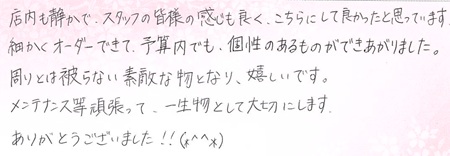 店内も静かで、スタッフの皆様の感じも良く、こちらにして良かったと思っています。
細かくオーダーできて、予算内でも、個性のあるものができあがりました。
周りとは被らない素敵な物となり、嬉しいです。
メンテナンス等頑張って、一生物として大切にします。
ありがとうございました!!(*^^*)